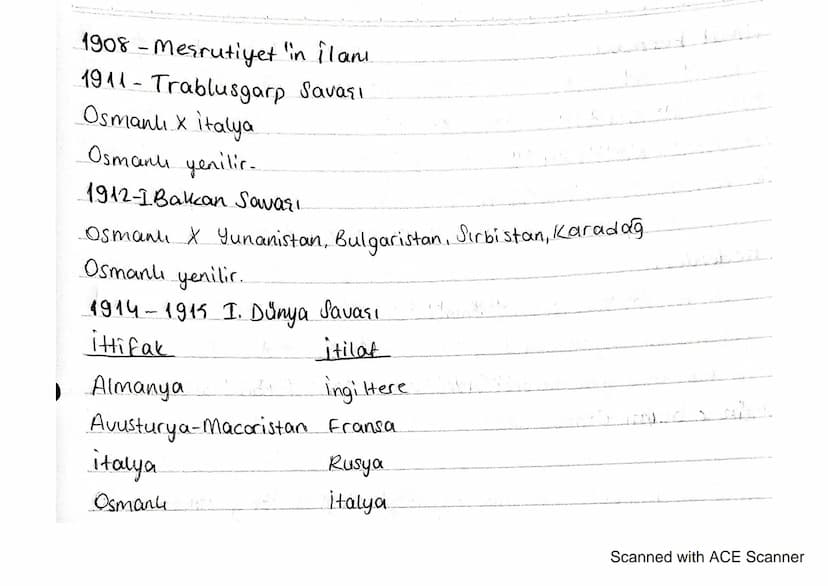 1908 - Meşrutiyet'in İlanı
1911 - Trablusgarp Savaşı
Osmanlı X İtalya
Osmanlı yenilir.
1912-I Balkan Savaşı
Osmanlı X Yunanistan, Bulgaristan, Sırbistan, Karadağ
Osmanlı yenilir.
1914 - 1915 I. Dünya Savaşı
İttifak İtilaf
Almanya İngiltere
Avusturya-Macaristan Fransa
İtalya Rusya
Osmanlı İtalya
Scanned with ACE Scanner